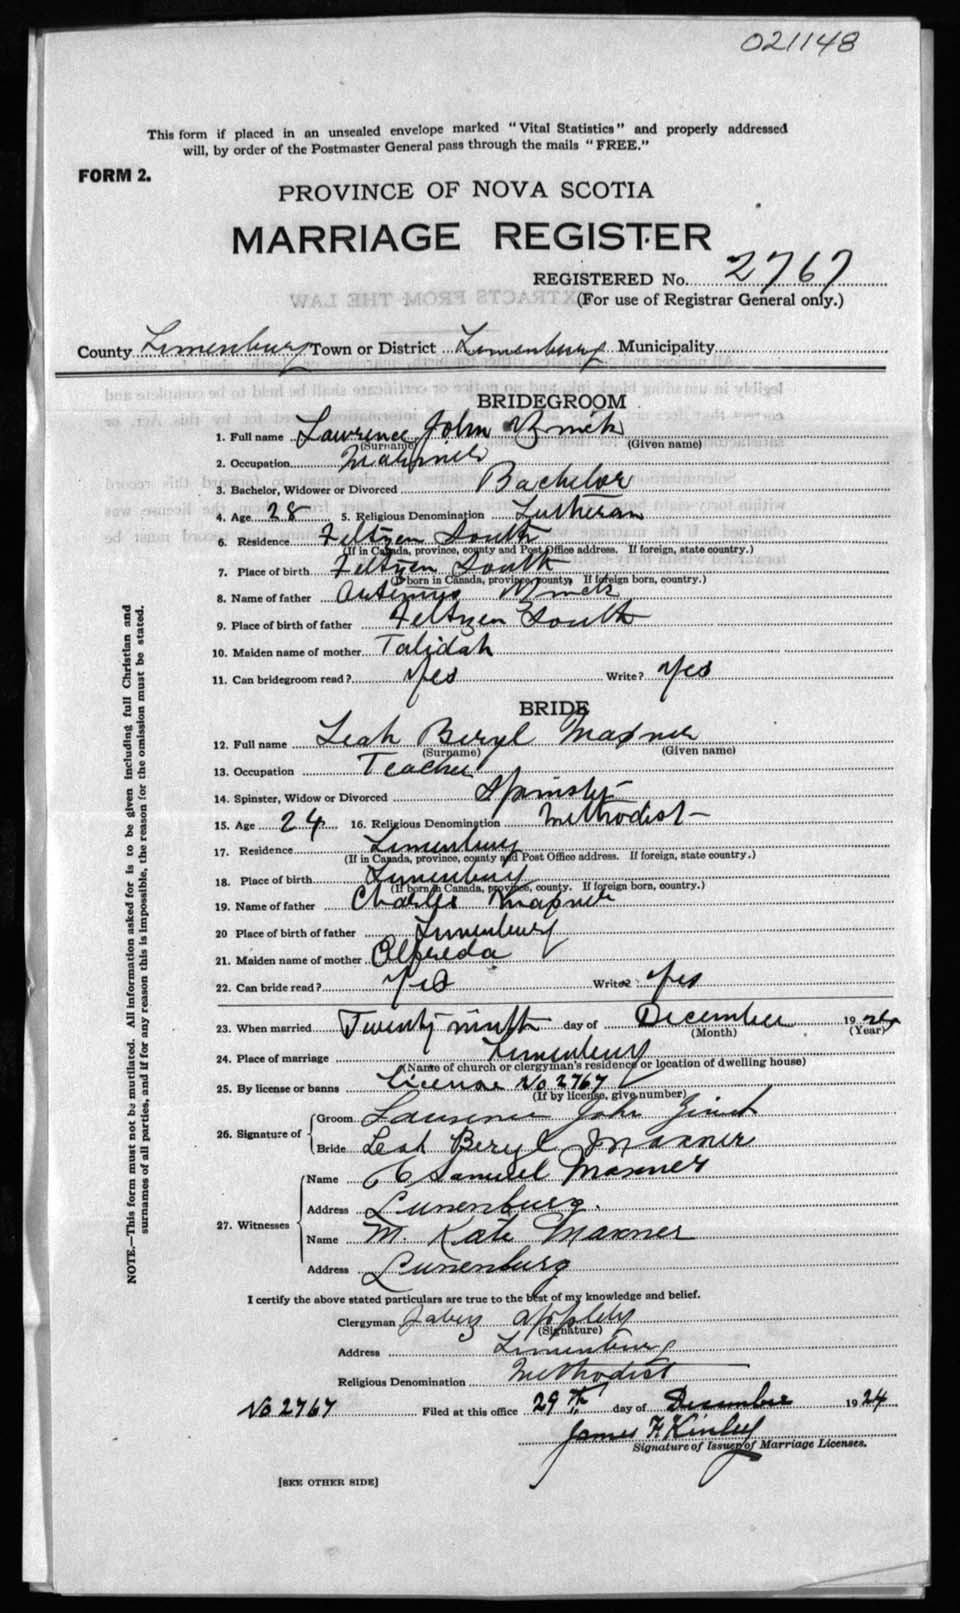 021148
This form if placed in an unsealed envelope marked "Vital Statistics" and properly addressed
will, by order of the Postmaster General pass through the mails "FREE."
FORM 2.
PROVINCE OF NOVA SCOTIA
MARRIAGE REGISTER
REGISTERED No. 2767
(For use of Registrar General only.)
County Lunenburg Town or District Lunenburg Municipality
BRIDEGROOM
1. Full name Lawrence John Zinck
(Surname) (Given name)
2. Occupation Mariner
3. Bachelor, Widower or Divorced Bachelor
4. Age 28 5. Religious Denomination Lutheran
6. Residence Feltzen South
(If in Canada, province, county and Post Office address. If foreign, state country.)
7. Place of birth Feltzen South
(If born in Canada, province, county, If foreign born, country.)
8. Name of father Artemus Zinck
9. Place of birth of father Feltzen South
10. Maiden name of mother Talidah
11. Can bridegroom read? Yes Write? Yes
BRIDE
12. Full name Leah Beryl Maxner
(Surname) (Given name)
13. Occupation Teacher
14. Spinster, Widow or Divorced Spinster
15. Age 24 16. Religious Denomination Methodist
17. Residence Lunenburg
(If in Canada, province, county and Post Office address. If foreign, state country.)
18. Place of birth Lunenburg
(If born in Canada, province, county. If foreign born, country.)
19. Name of father Charles Maxner
20 Place of birth of father Lunenburg
21. Maiden name of mother Alfreda
22. Can bride read? Yes Write? Yes
23. When married Twenty ninth day of December 1924
(Month) (Year)
24. Place of marriage Lunenburg
(Name of church or clergyman's residence or location of dwelling house)
25. By license or banns License No 2767
(If by license, give number)
26. Signature of Groom Lawrence John Zinck
Bride Leah Beryl Maxner
27. Witnesses Name C Samuel Maxner
Address Lunenburg.
Name M. Kate Maxner
Address Lunenburg
I certify the above stated particulars are true to the best of my knowledge and belief.
Clergyman Jabez Appleby
(Signature)
Address Lunenburg
Religious Denomination Methodist
No 2767 Filed at this office 29th day of December 1924
James F. Kinley
Signature of Issuer of Marriage Licenses.
[SEE OTHER SIDE]
NOTE.—This form must not be mutilated. All information asked for is to be given including full Christian and
surnames of all parties, and if for any reason this is impossible, the reason for the omission must be stated.